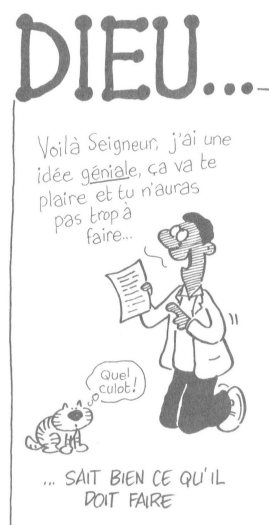 DIEU...
Voilà Seigneur, j'ai une
idée géniale, ça va te
plaire et tu n'auras
pas trop à
faire...
Quel
culot!
... SAIT BIEN CE QU'IL
DOIT FAIRE